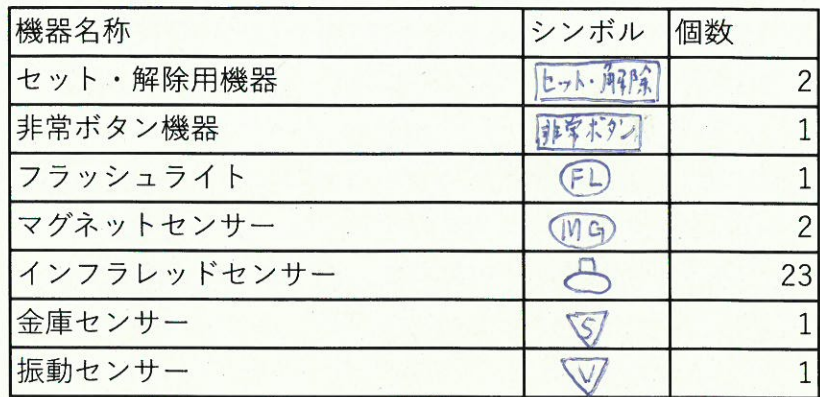 機器名称 シンボル 個数
セット・解除用機器 セット・解除 2
非常ボタン機器 非常ボタン 1
フラッシュライト FL 1
マグネットセンサー MG 2
インフラレッドセンサー 23
金庫センサー S 1
振動センサー V 1